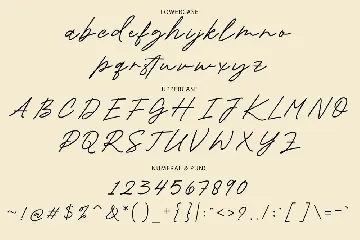 LOWERCASE
abcdefghijklmno
pqrstuvwxyz
UPPERCASE
ABCDEFGHIJKLMNO
PQRSTUVWXYZ
NUMERAL & PUNC
1234567890
~!@#$%^&*()_+{}|:"<>?../;'[]\=-`